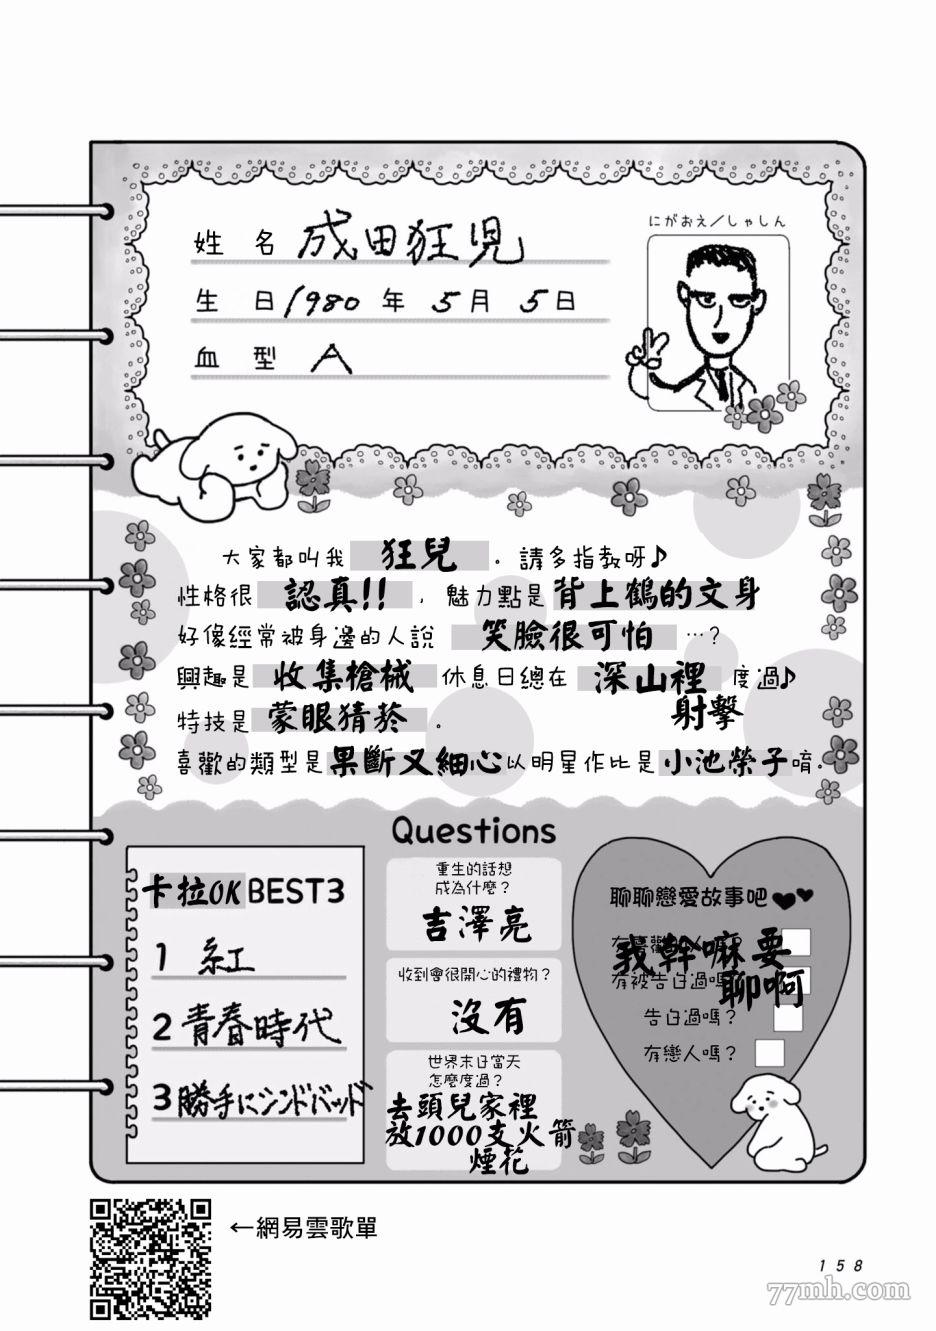 姓名 成田狂児
にがおえ/しゃしん
生日 1980 年 5 月 5 日
血型 A
大家都叫我 狂兒 。請多指教呀♪
性格很 認真!! ，魅力點是 背上鶴的文身
好像經常被身邊的人說 笑臉很可怕 …?
興趣是 收集槍械 休息日總在 深山裡 度過♪
射擊
特技是 蒙眼猜菸 。
喜歡的類型是 果斷又細心 以明星作比是 小池榮子 唷。
Questions
卡拉OK BEST3
1 紅
2 青春時代
3 勝手にシンドバッド
重生的話想
成為什麼?
吉澤亮
收到會很開心的禮物?
沒有
世界末日當天
怎麼度過?
去頭兒家裡
放1000支火箭
煙花
聊聊戀愛故事吧
我幹嘛要
有被告白過嗎?
聊啊
告白過嗎?
有戀人嗎?
←網易雲歌單
158
77mh.com